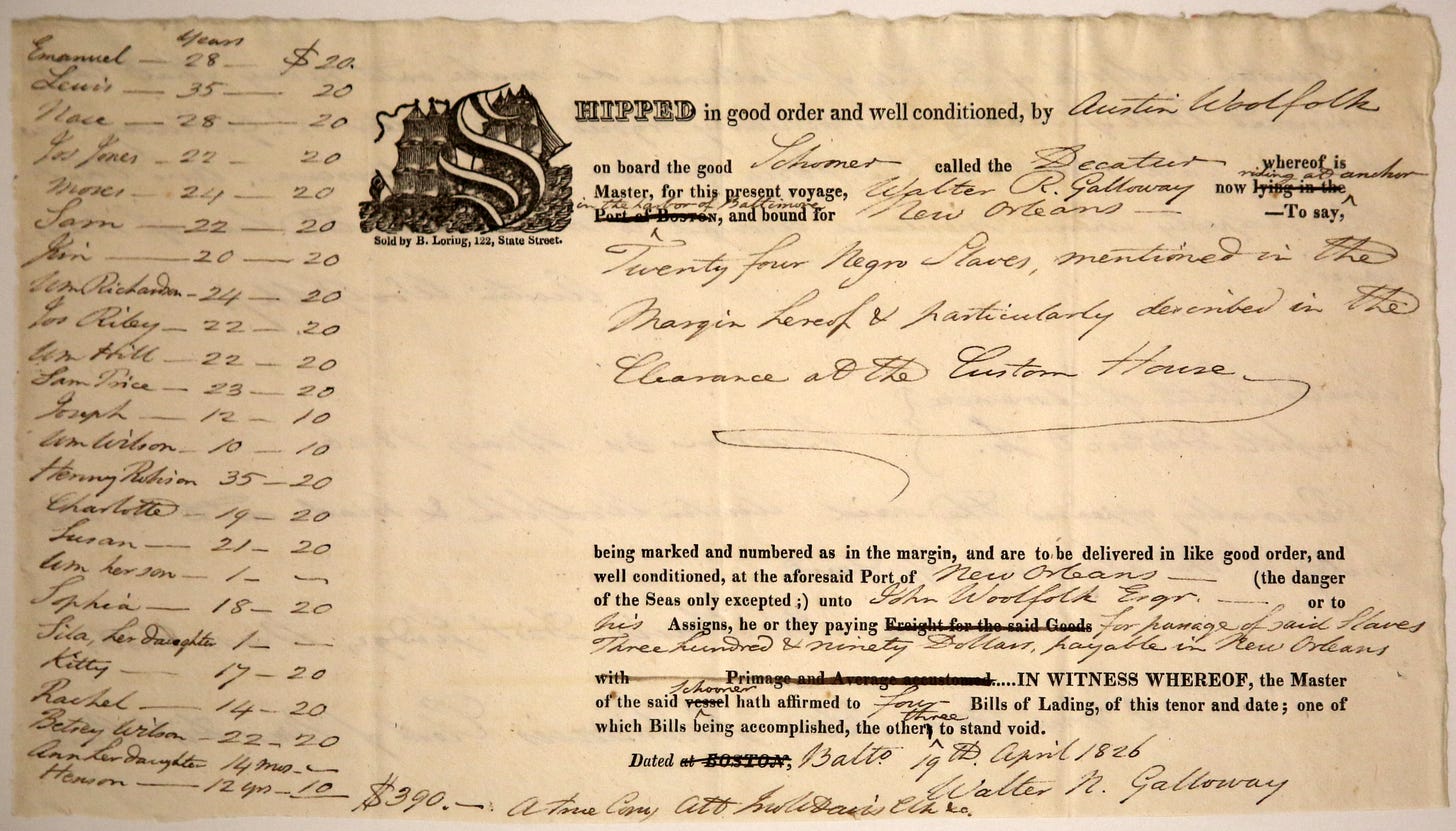 Years
Emanuel — 28 — $20.
Lewis — 35 — 20
Nace — 28 — 20
Jos Jones — 22 — 20
Moses — 24 — 20
Sam — 22 — 20
— 20 — 20
Wm Richardson — 24 — 20
Jos Riley — 22 — 20
Wm Hill — 22 — 20
Sam Price — 23 — 20
Joseph — 12 — 10
Wm Wilson — 10 — 10
Henny Robison 35 — 20
Charlotte — 19 — 20
Susan — 21 — 20
Wm her son — 1 — —
Sophia — 18 — 20
her daughter 1 — —
Kitty — 17 — 20
Rachel — 14 — 20
Betsey Wilson — 22 — 20
Ann her daughter 14 mos — —
Henson — 12 yrs — 10
$390. —
Sold by B. Loring, 122, State Street.
SHIPPED in good order and well conditioned, by Austin Woolfolk
on board the good Schooner called the Decatur whereof is
Master, for this present voyage, Walter R. Galloway now lying in the riding at anchor
in the harbor of Baltimore
Port of BOSTON, and bound for New Orleans — —To say,
Twenty four Negro Slaves, mentioned in the
Margin hereof & particularly described in the
Clearance at the Custom House
being marked and numbered as in the margin, and are to be delivered in like good order, and
well conditioned, at the aforesaid Port of New Orleans — (the danger
of the Seas only excepted ;) unto John Woolfolk Esqr. — or to
his Assigns, he or they paying Freight for the said Goods for passage of said Slaves
Three hundred & ninety Dollars, payable in New Orleans
with Primage and Average accustomed.....IN WITNESS WHEREOF, the Master
of the said vessel schooner hath affirmed to four Bills of Lading, of this tenor and date; one of
which Bills being accomplished, the other three to stand void.
Dated at BOSTON, Balto 19th. April 1826
Walter R. Galloway
A True Copy Att